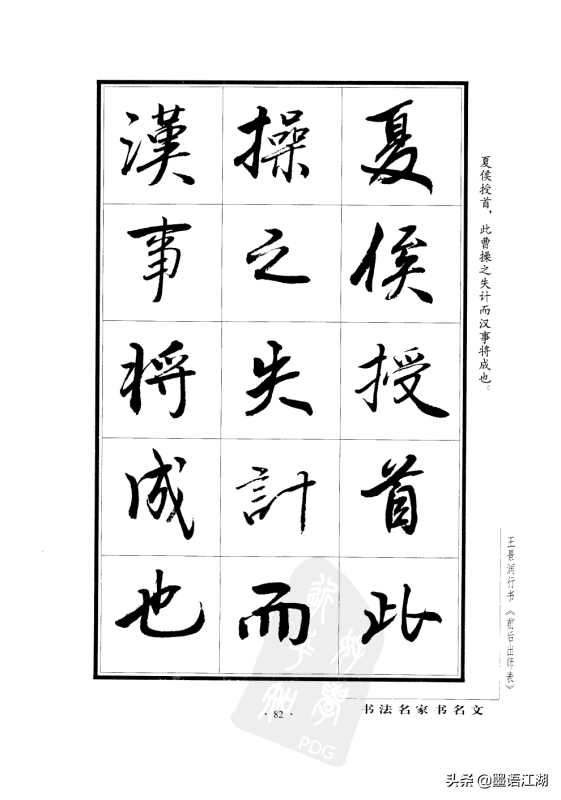 夏侯授首此
操之失計而
漢事将成也
夏侯授首，此曹操之失计而汉事将成也。
王景润行书《前后出师表》
· 82 ·
书法名家书名文
PDG
头条@墨语江湖